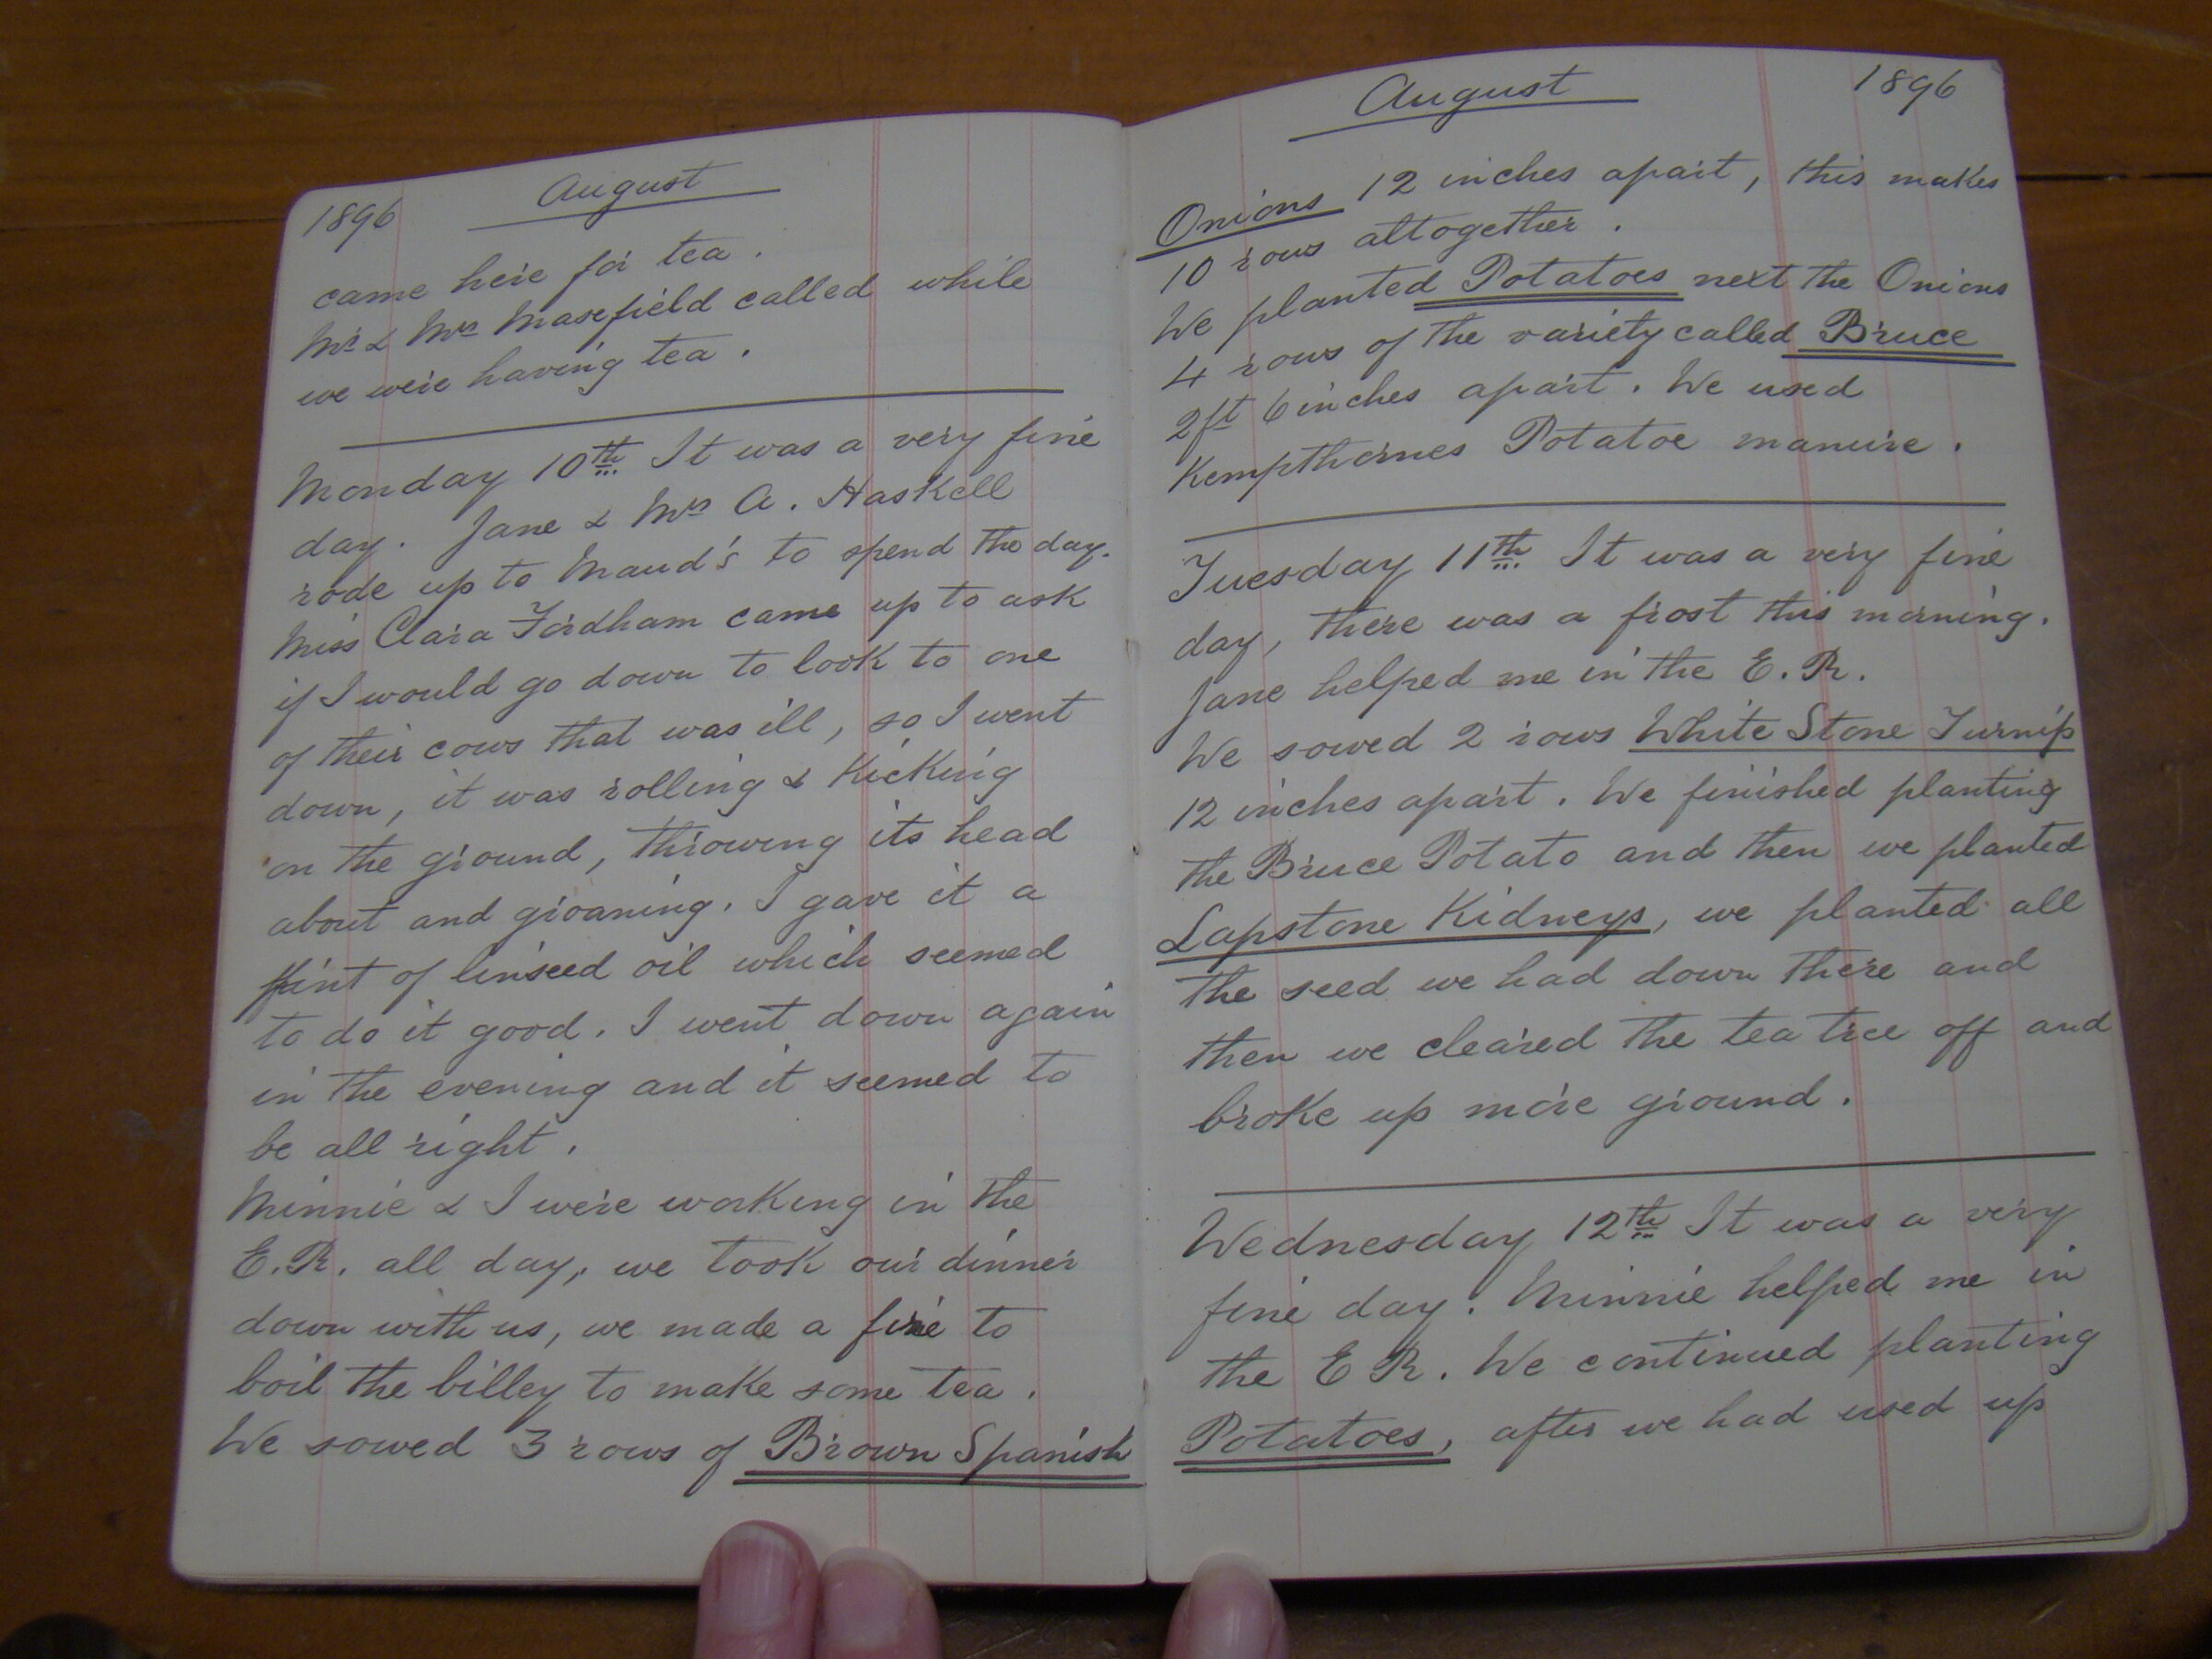 1896 August
came here for tea.
Mr & Mrs Masefield called while
we were having tea.
Monday 10th It was a very fine
day. Jane & Mrs A. Haskell
rode up to Maud's to spend the day.
Miss Clara Fordham came up to ask
if I would go down to look to one
of their cows that was ill, so I went
down, it was rolling & kicking
on the ground, throwing its head
about and groaning. I gave it a
pint of linseed oil which seemed
to do it good. I went down again
in the evening and it seemed to
be all right.
Minnie & I were working in the
E.R. all day, we took our dinner
down with us, we made a fire to
boil the billey to make some tea.
We sowed 3 rows of Brown Spanish
August 1896
Onions 12 inches apart, this makes
10 rows altogether.
We planted Potatoes next the Onions
4 rows of the variety called Bruce
2ft 6 inches apart. We used
Kempthornes Potatoe manure.
Tuesday 11th It was a very fine
day, there was a frost this morning.
Jane helped me in the E.R.
We sowed 2 rows White Stone Turnip
12 inches apart. We finished planting
the Bruce Potato and then we planted
Lapstone Kidneys, we planted all
the seed we had down there and
then we cleared the tea tree off and
broke up more ground.
Wednesday 12th It was a very
fine day. Minnie helped me in
the E R. We continued planting
Potatoes, after we had used up